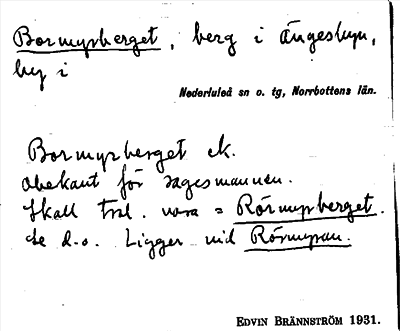 Bormyrberget, berg i Ängesbyn,
by i
Nederluleå sn o. tg, Norrbottens län.
Bormyrberget ek.
obekant för sagesmannen.
Skall trol. vara = Rörmyrberget.
se d.o. Ligger vid Rörmyran.
EDVIN BRÄNNSTRÖM 1931.